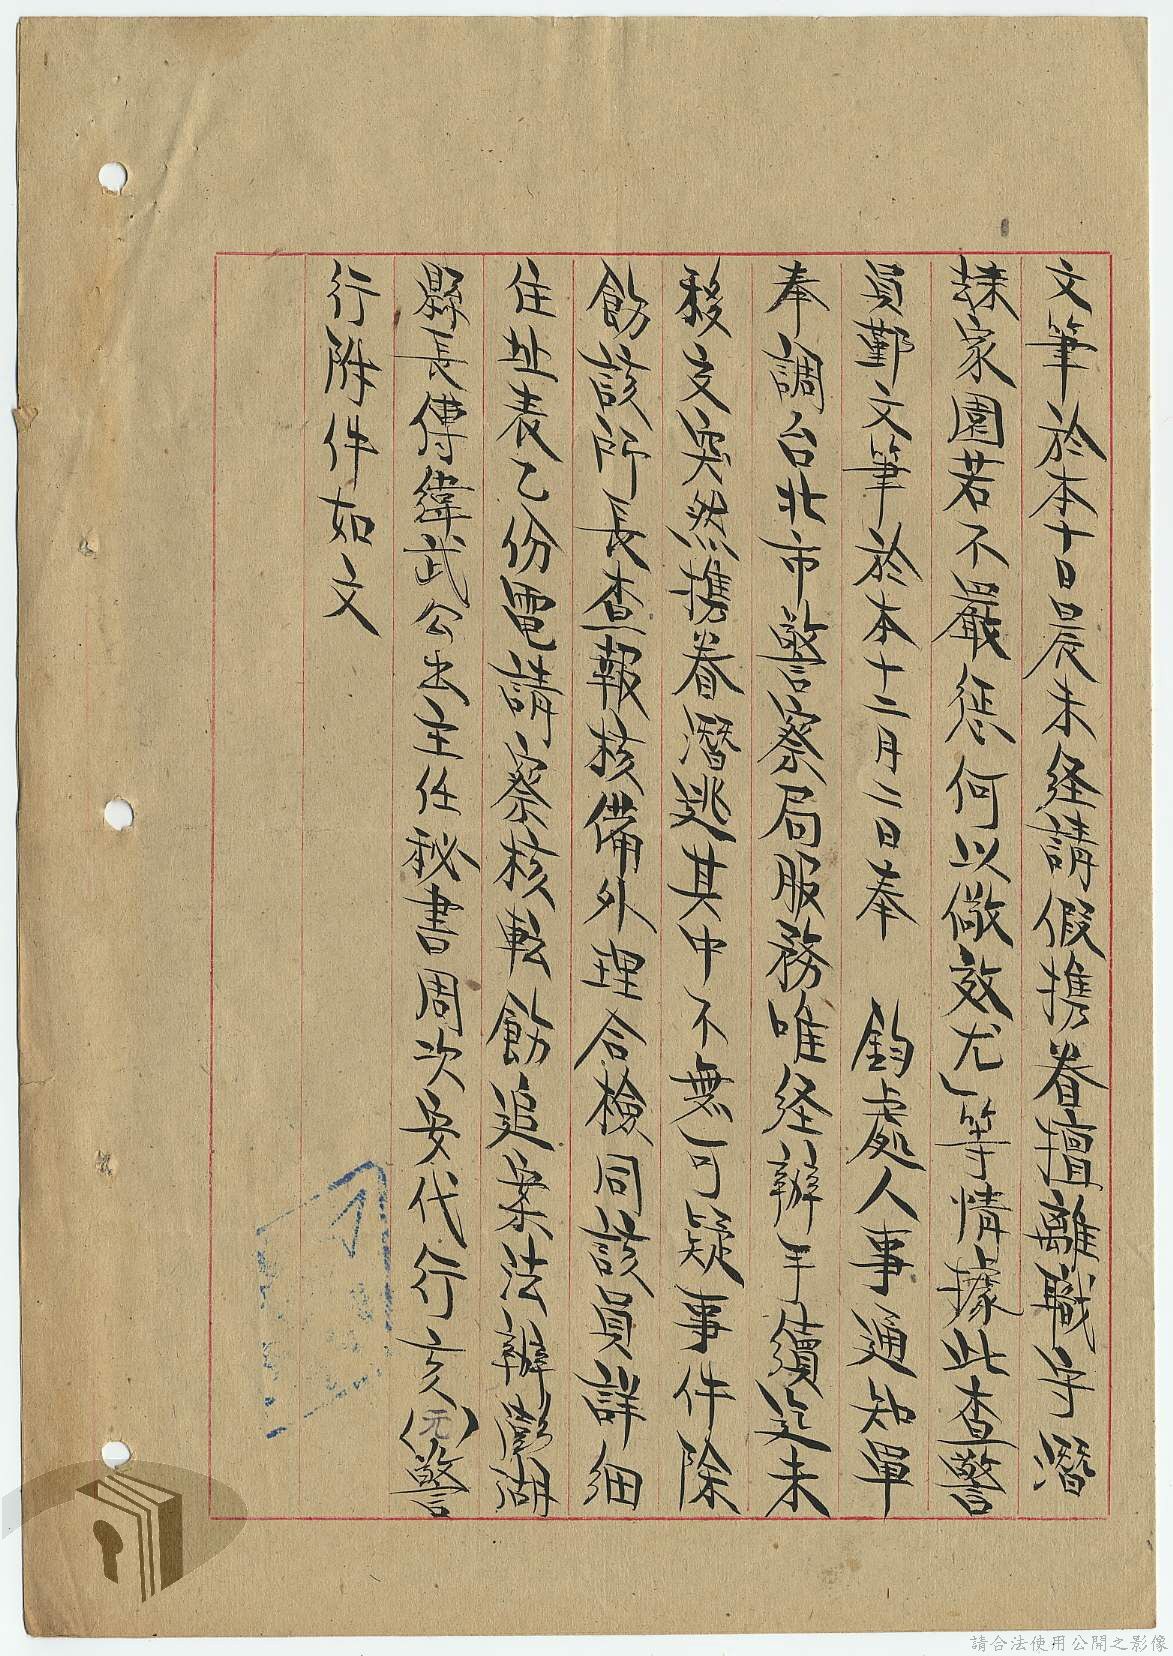 文筆於本十日晨未经請假攜眷擅離職守潛
家園若不嚴惩何以儆效尤」等情據此查警
員鄞文筆於本十二月二日奉　鈞處人事通知單
奉調台北市警察局服務唯经辦手續迄未
移交突然攜眷潛逃其中不無可疑事件除
飭該所長查報核備外理合檢同該員詳細
住址表乙份電請察核転飭追案法辦澎湖
縣長傅緯武公出主任秘書周次安代行亥(元)警
行附件如文
請合法使用公開之影像